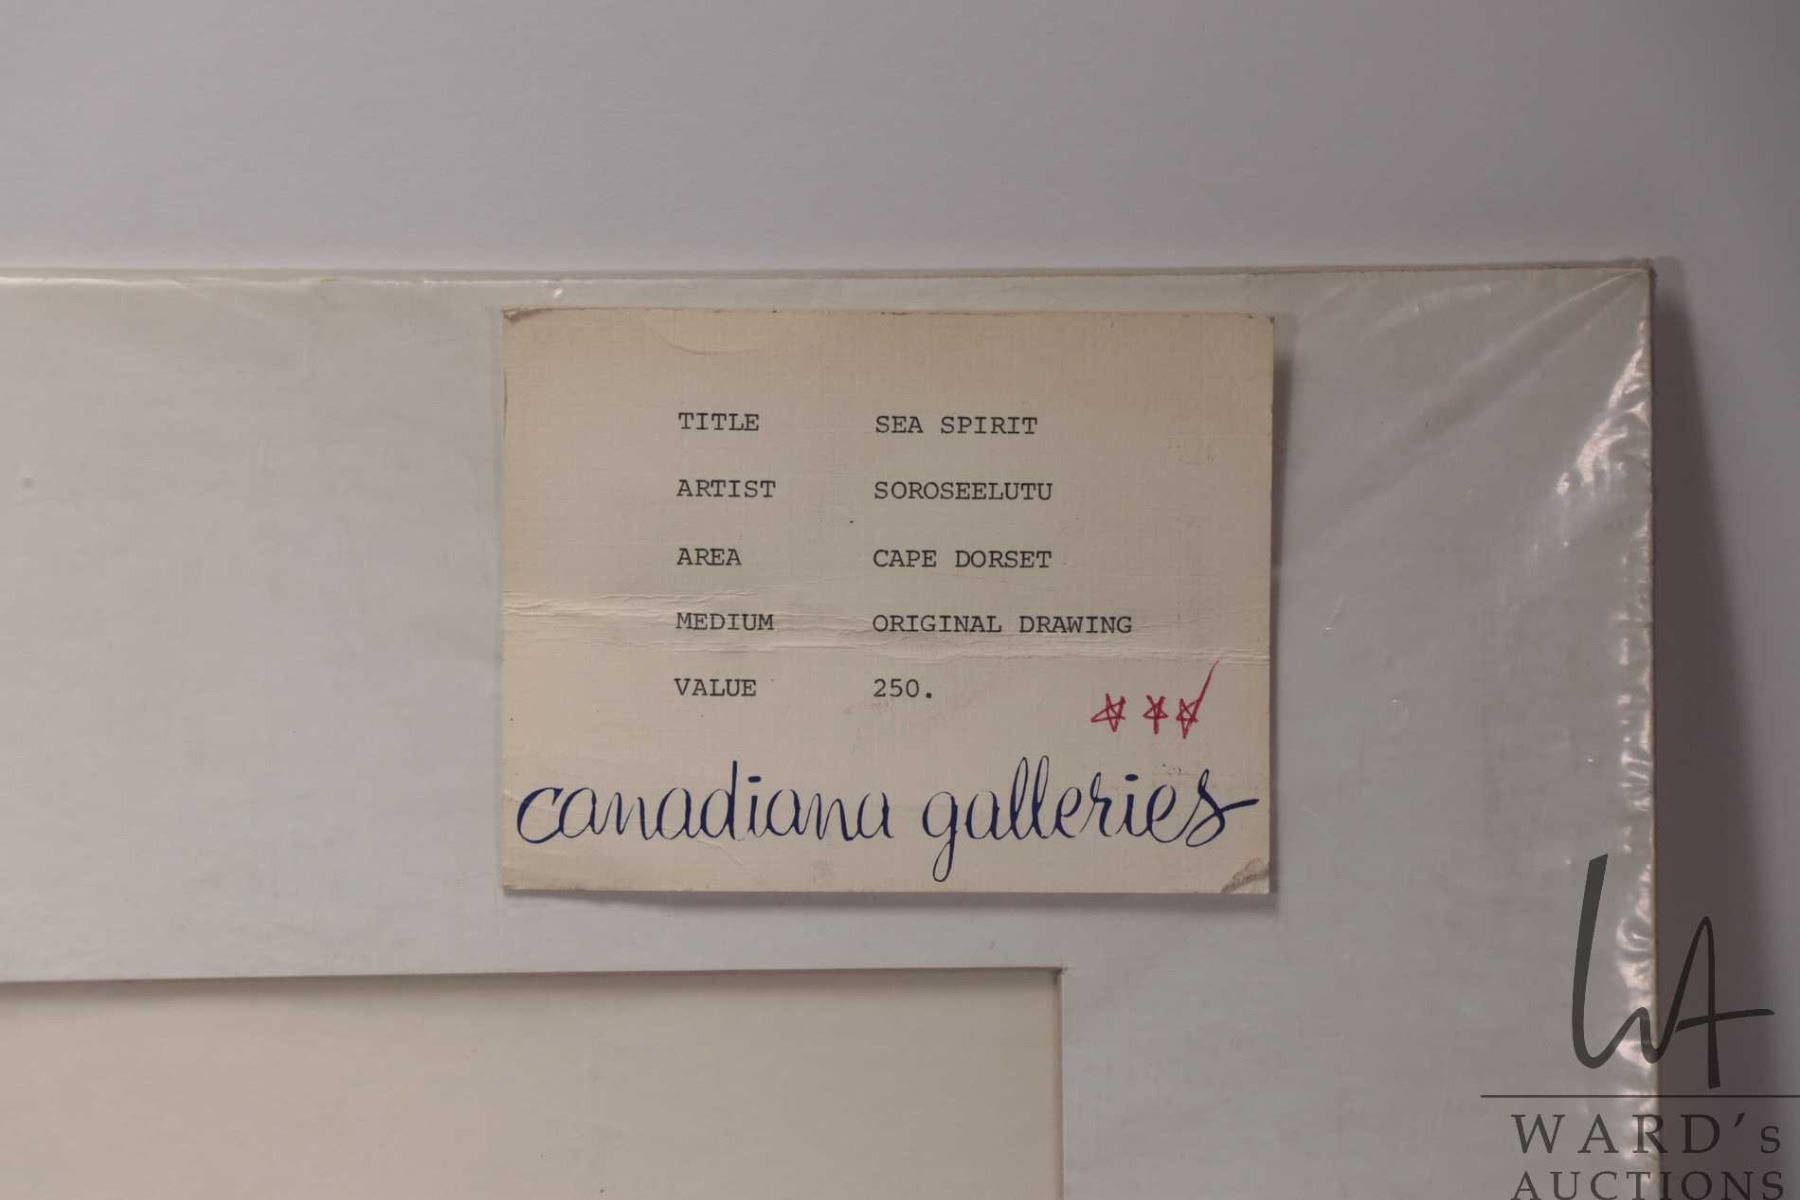 TITLE SEA SPIRIT
ARTIST SOROSEELUTU
AREA CAPE DORSET
MEDIUM ORIGINAL DRAWING
VALUE 250.
canadiana galleries
WA
WARD's
AUCTIONS